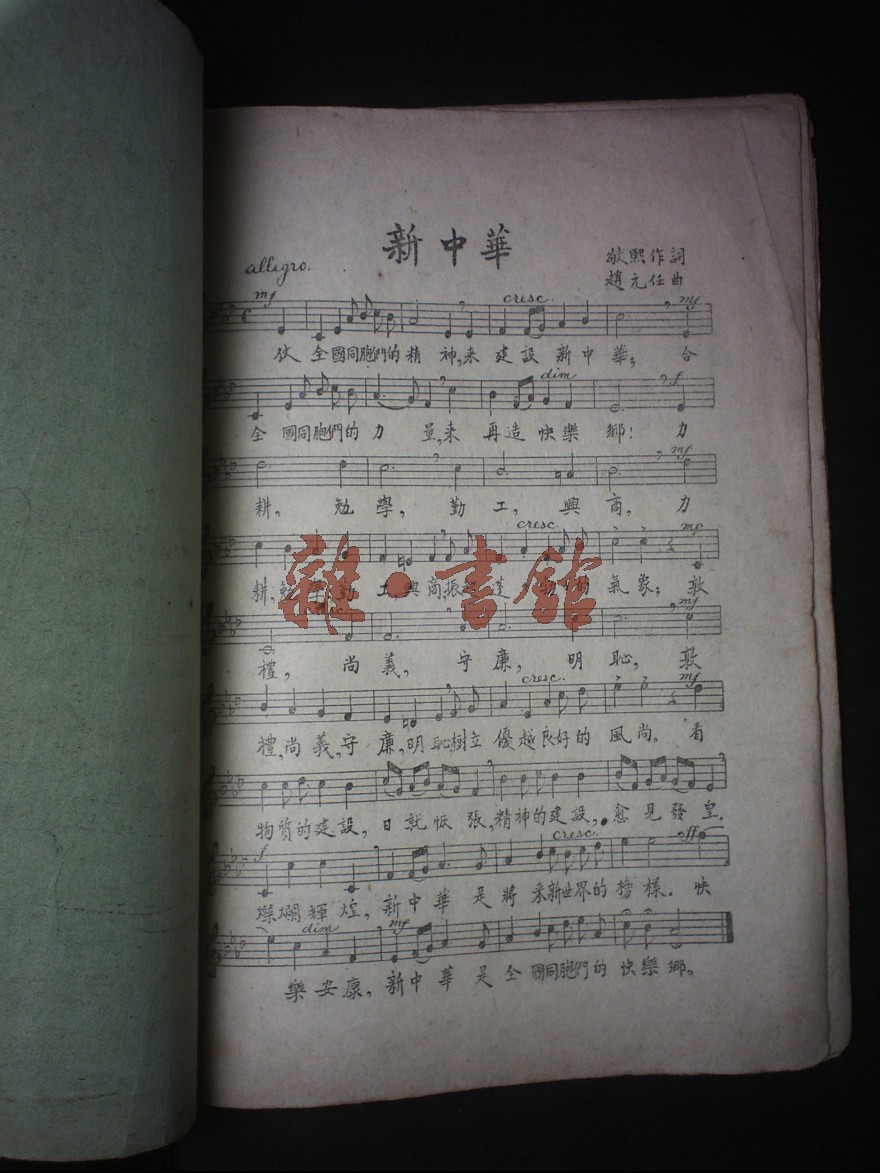 新中華
allegro.
歌熙作詞
趙元任曲
mf cresc. mf
仗全國同胞們的精神,来建設新中華；合
dim f
全國同胞們的力量,来再造快樂鄉！力
mf
耕，勉學，勤工，興商，力
cresc. mp
耕,勉學,勤工,興商,振起蓬勃的氣象；敦
雜·書館
mf
禮，尚義，守廉，明恥，敦
cresc. mf
禮,尚義,守廉,明恥,樹立優越良好的風尚。看
物质的建設，日就恢張,精神的建設，愈見發皇。
f cresc. ff
燦爛輝煌，新中華是將来新世界的榜樣。快
dim mf
樂安康，新中華是全國同胞們的快樂鄉。